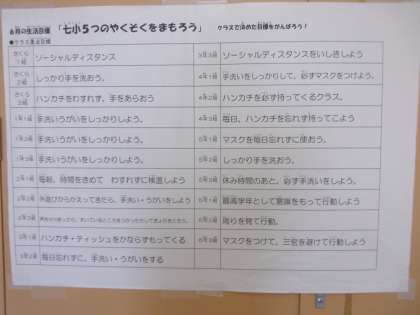 6月の生活目標 「七小5つのやくそくをまもろう」 クラスで決めた目標をがんばろう！
●クラス生活目標
さくら1組 ソーシャルディスタンス
さくら2組 しっかり手を洗おう。
さくら3組 ハンカチをわすれず、手をあらおう
1年1組 手洗いうがいをしっかりしよう。
1年2組 手洗いうがいをしっかりしよう。
1年3組 手洗いうがいをしっかりしよう。
2年1組 毎朝、時間をきめて わすれずに検温しよう
2年2組 外遊びからかえってきたら、手洗い・うがいをしよう
3年1組 ハンカチ・ティッシュをかならずもってくる
3年2組 毎日忘れずに、手洗い・うがいをする
3年3組 ソーシャルディスタンスをいしきしよう
4年1組 手洗いをしっかりして、必ずマスクをつけよう。
4年2組 ハンカチを必ず持ってくるクラス。
4年3組 毎日、ハンカチを忘れず持ってこよう
5年1組 マスクを毎日忘れずに使おう。
5年2組 しっかり手を洗おう。
5年3組 休み時間のあと、必ず手洗いをしよう。
6年1組 最高学年として意識をもって行動しよう
6年2組 周りを見て行動。
6年3組 マスクをつけて、三密を避けて行動しよう